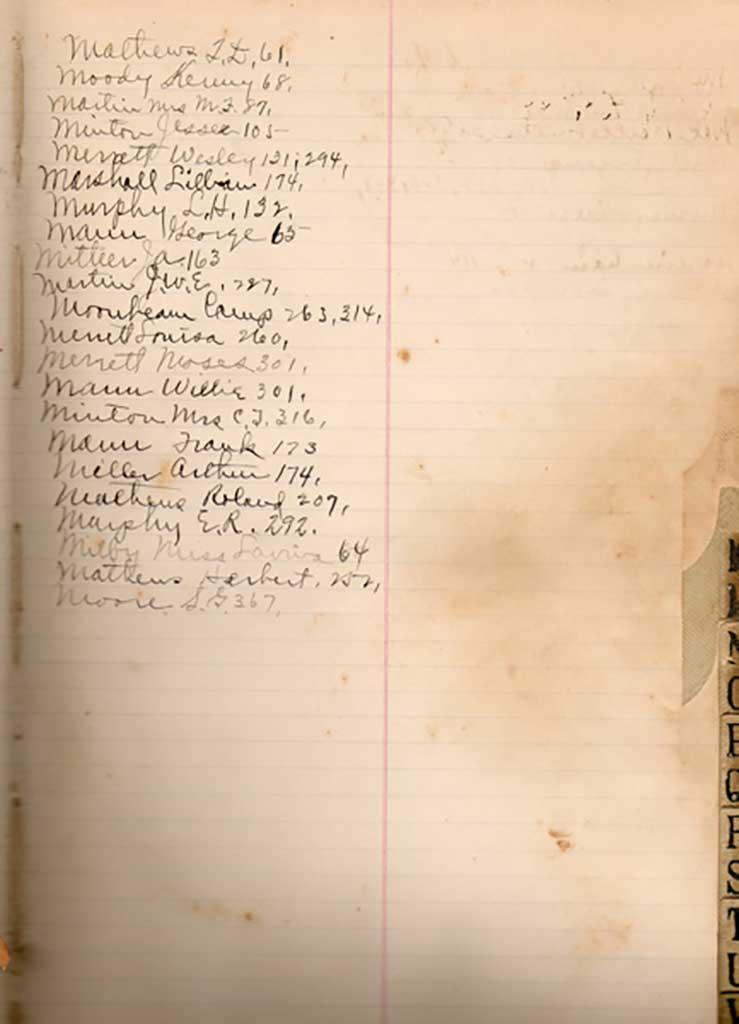 Mathews L.D. 61,
Moody Henry 68,
Martin Mrs M.F. 87,
Minton Jesse 105
Merrett Wesley 131, 294,
Marshall Lillian 174,
Murphy L.H. 132.
Mann George 65
Ja 163
Martin J.W.E. 227,
Moonbeam Camp 263, 314,
Merrett Louisa 260,
Merrett Moses 301,
Mann Willie 301,
Minton Mrs C.J. 316,
Mann Frank 173
Miller Arthur 174,
Mathews Roland 207,
Murphy E.R. 292.
Milby Miss 64
Mathews Herbert, 252,
Moore S.G. 367,
M
N
O
P
Q
R
S
T
U